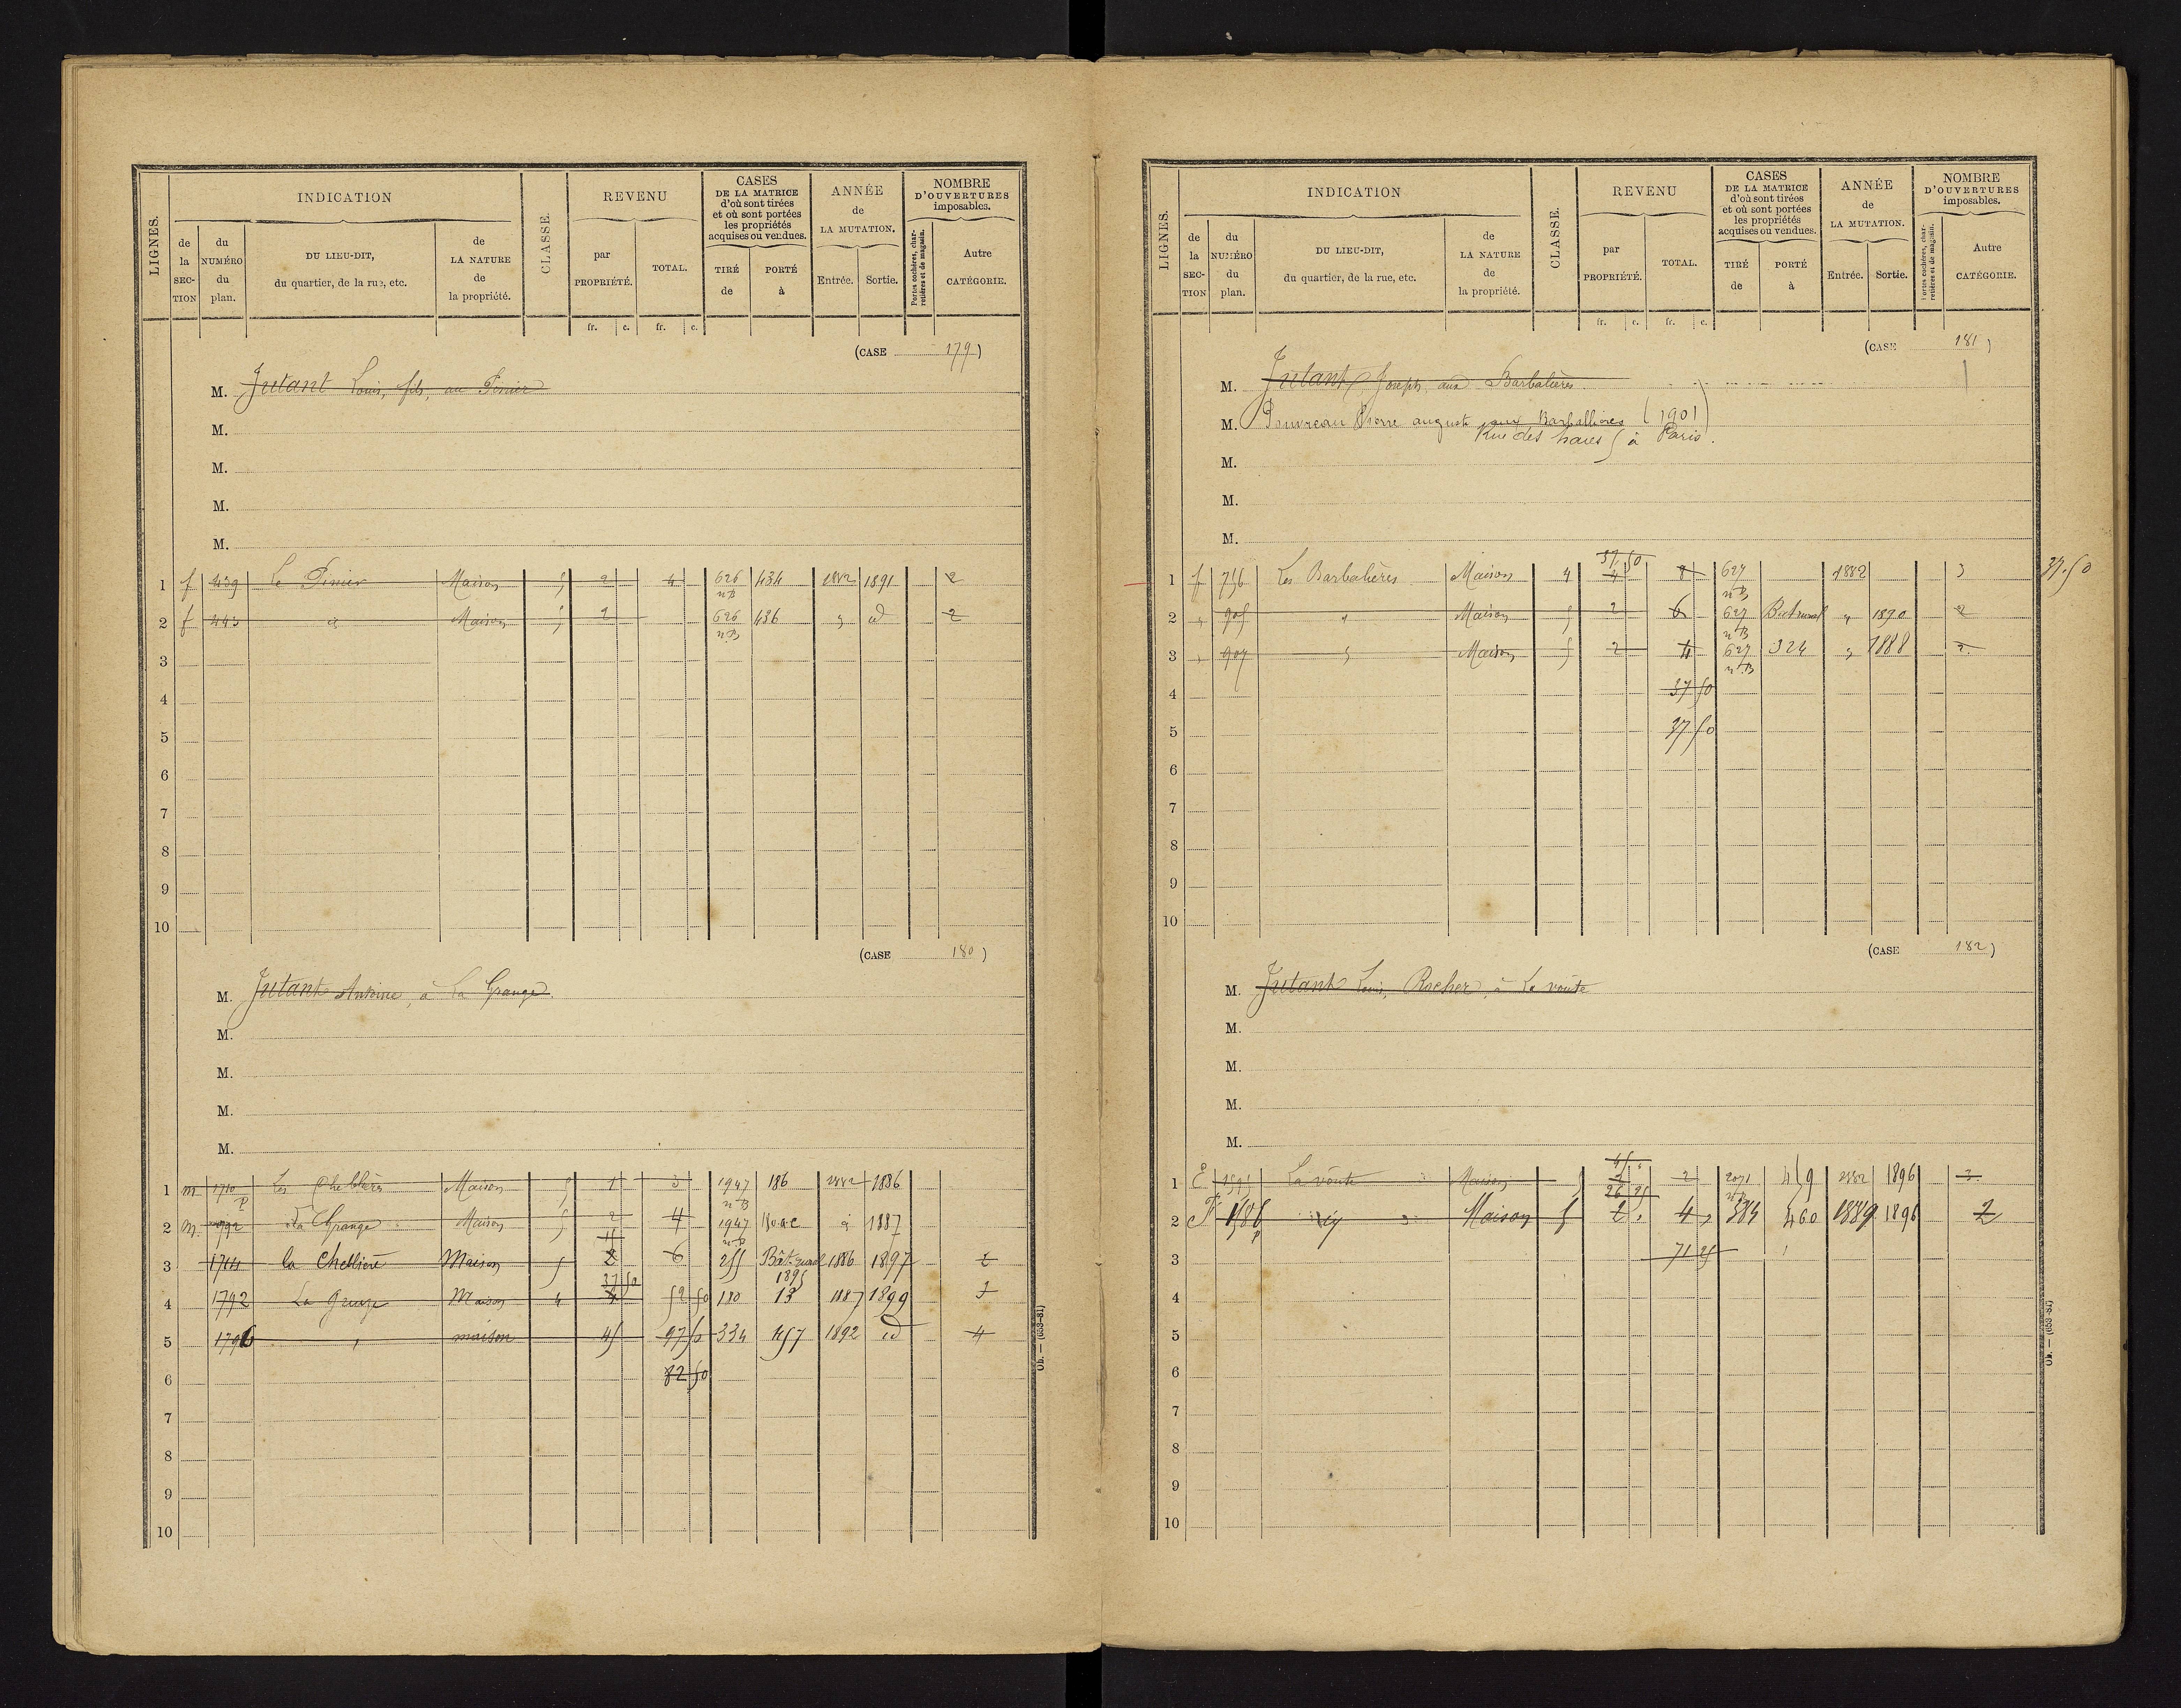 LIGNES.
INDICATION
de la SECTION
du NUMÉRO du plan.
DU LIEU-DIT, du quartier, de la rue, etc.
de LA NATURE de la propriété.
CLASSE.
REVENU
par PROPRIÉTÉ.
TOTAL.
fr. c. fr. c.
CASES DE LA MATRICE d'où sont tirées et où sont portées les propriétés acquises ou vendues.
TIRÉ de
PORTÉ à
ANNÉE de LA MUTATION.
Entrée. Sortie.
NOMBRE D'OUVERTURES imposables.
Portes cochères, charretières et de magasin.
Autre CATÉGORIE.
(CASE 179)
M. Jutant Louis, fils, au Pinier
M.
M.
M.
M.
1 f 439 Le Pinier Maison 5 2 4 626 n.B 434 1882 1891 2
2 f 443 Maison 5 2 626 n.B 436 " id 2
3
4
5
6
7
8
9
10
(CASE 180)
M. Jutant Antoine, à La Grange
M.
M.
M.
M.
1 m 1710 p Les Maison 5 1 3 1947 n.B 186 1882 1886
2 m 1792 La Grange Maison 5 2 4 1947 n.B 1887
3 1714 la Chellière Maison 5 15 2 6 255 Bât. rural 1895 1886 1897 2
4 1792 La Grange Maison 4 37 50 4 52 50 180 13 1887 1899 3
5 1796 " maison 45 97 50 334 457 1892 id 4
6 82 50
7
8
9
10
Ob. — (653-81)
LIGNES.
INDICATION
de la SECTION
du NUMÉRO du plan.
DU LIEU-DIT, du quartier, de la rue, etc.
de LA NATURE de la propriété.
CLASSE.
REVENU
par PROPRIÉTÉ.
TOTAL.
fr. c. fr. c.
CASES DE LA MATRICE d'où sont tirées et où sont portées les propriétés acquises ou vendues.
TIRÉ de
PORTÉ à
ANNÉE de LA MUTATION.
Entrée. Sortie.
NOMBRE D'OUVERTURES imposables.
Portes cochères, charretières et de magasin.
Autre CATÉGORIE.
(CASE 181)
M. Jutant Joseph, aux Barbalières
M. Pouvreau Pierre auguste aux Barballières (1901)
Rue des haies à Paris.
M.
M.
M.
1 f 756 Les Barbalières Maison 4 37 50 4 8 627 n.B 1882 3 37.50
2 " 905 " Maison 5 2 6 627 n.B Bat rural " 1890 2
3 " 907 " Maison 5 2 4 627 n.B 324 " 1888 2
4 37 50
5 37 50
6
7
8
9
10
(CASE 182)
M. Jutant Louis, Rocher, à La voûte
M.
M.
M.
M.
1 E La voûte Maison 5 45 2 2 2071 n.B 459 1882 1896 2
2 F 1586 p Maison 5 26 25 2 4 384 460 1889 1896 2
3 71 25
4
5
6
7
8
9
10
Ob. — (653-81)